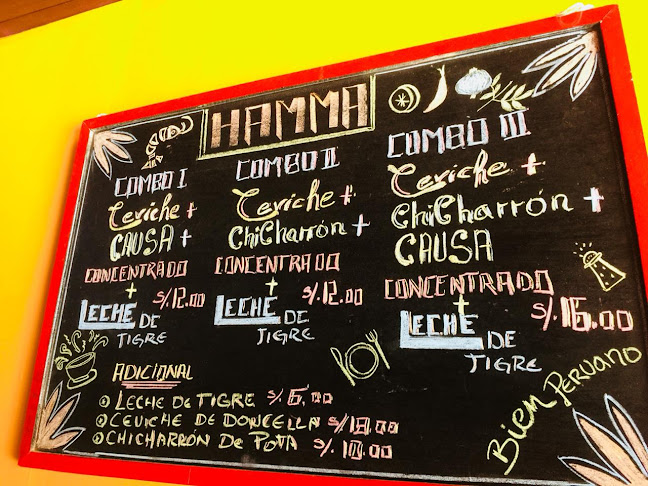 HAMMA
COMBO I
Ceviche +
CAUSA +
CONCENTRADO
+
LECHE DE TIGRE
S/. 12.00
COMBO II
Ceviche +
ChiCharrón +
CONCENTRADO
+
LECHE DE TIGRE
S/. 12.00
COMBO III
Ceviche +
ChiCharrón +
CAUSA
CONCENTRADO
+
LECHE DE TIGRE
S/. 16.00
ADICIONAL
LECHE DE TIGRE S/. 6,00
CEVICHE DE DONCELLA S/ 18.00
CHICHARRÓN DE POTA S/. 10.00
Biem PERUANO